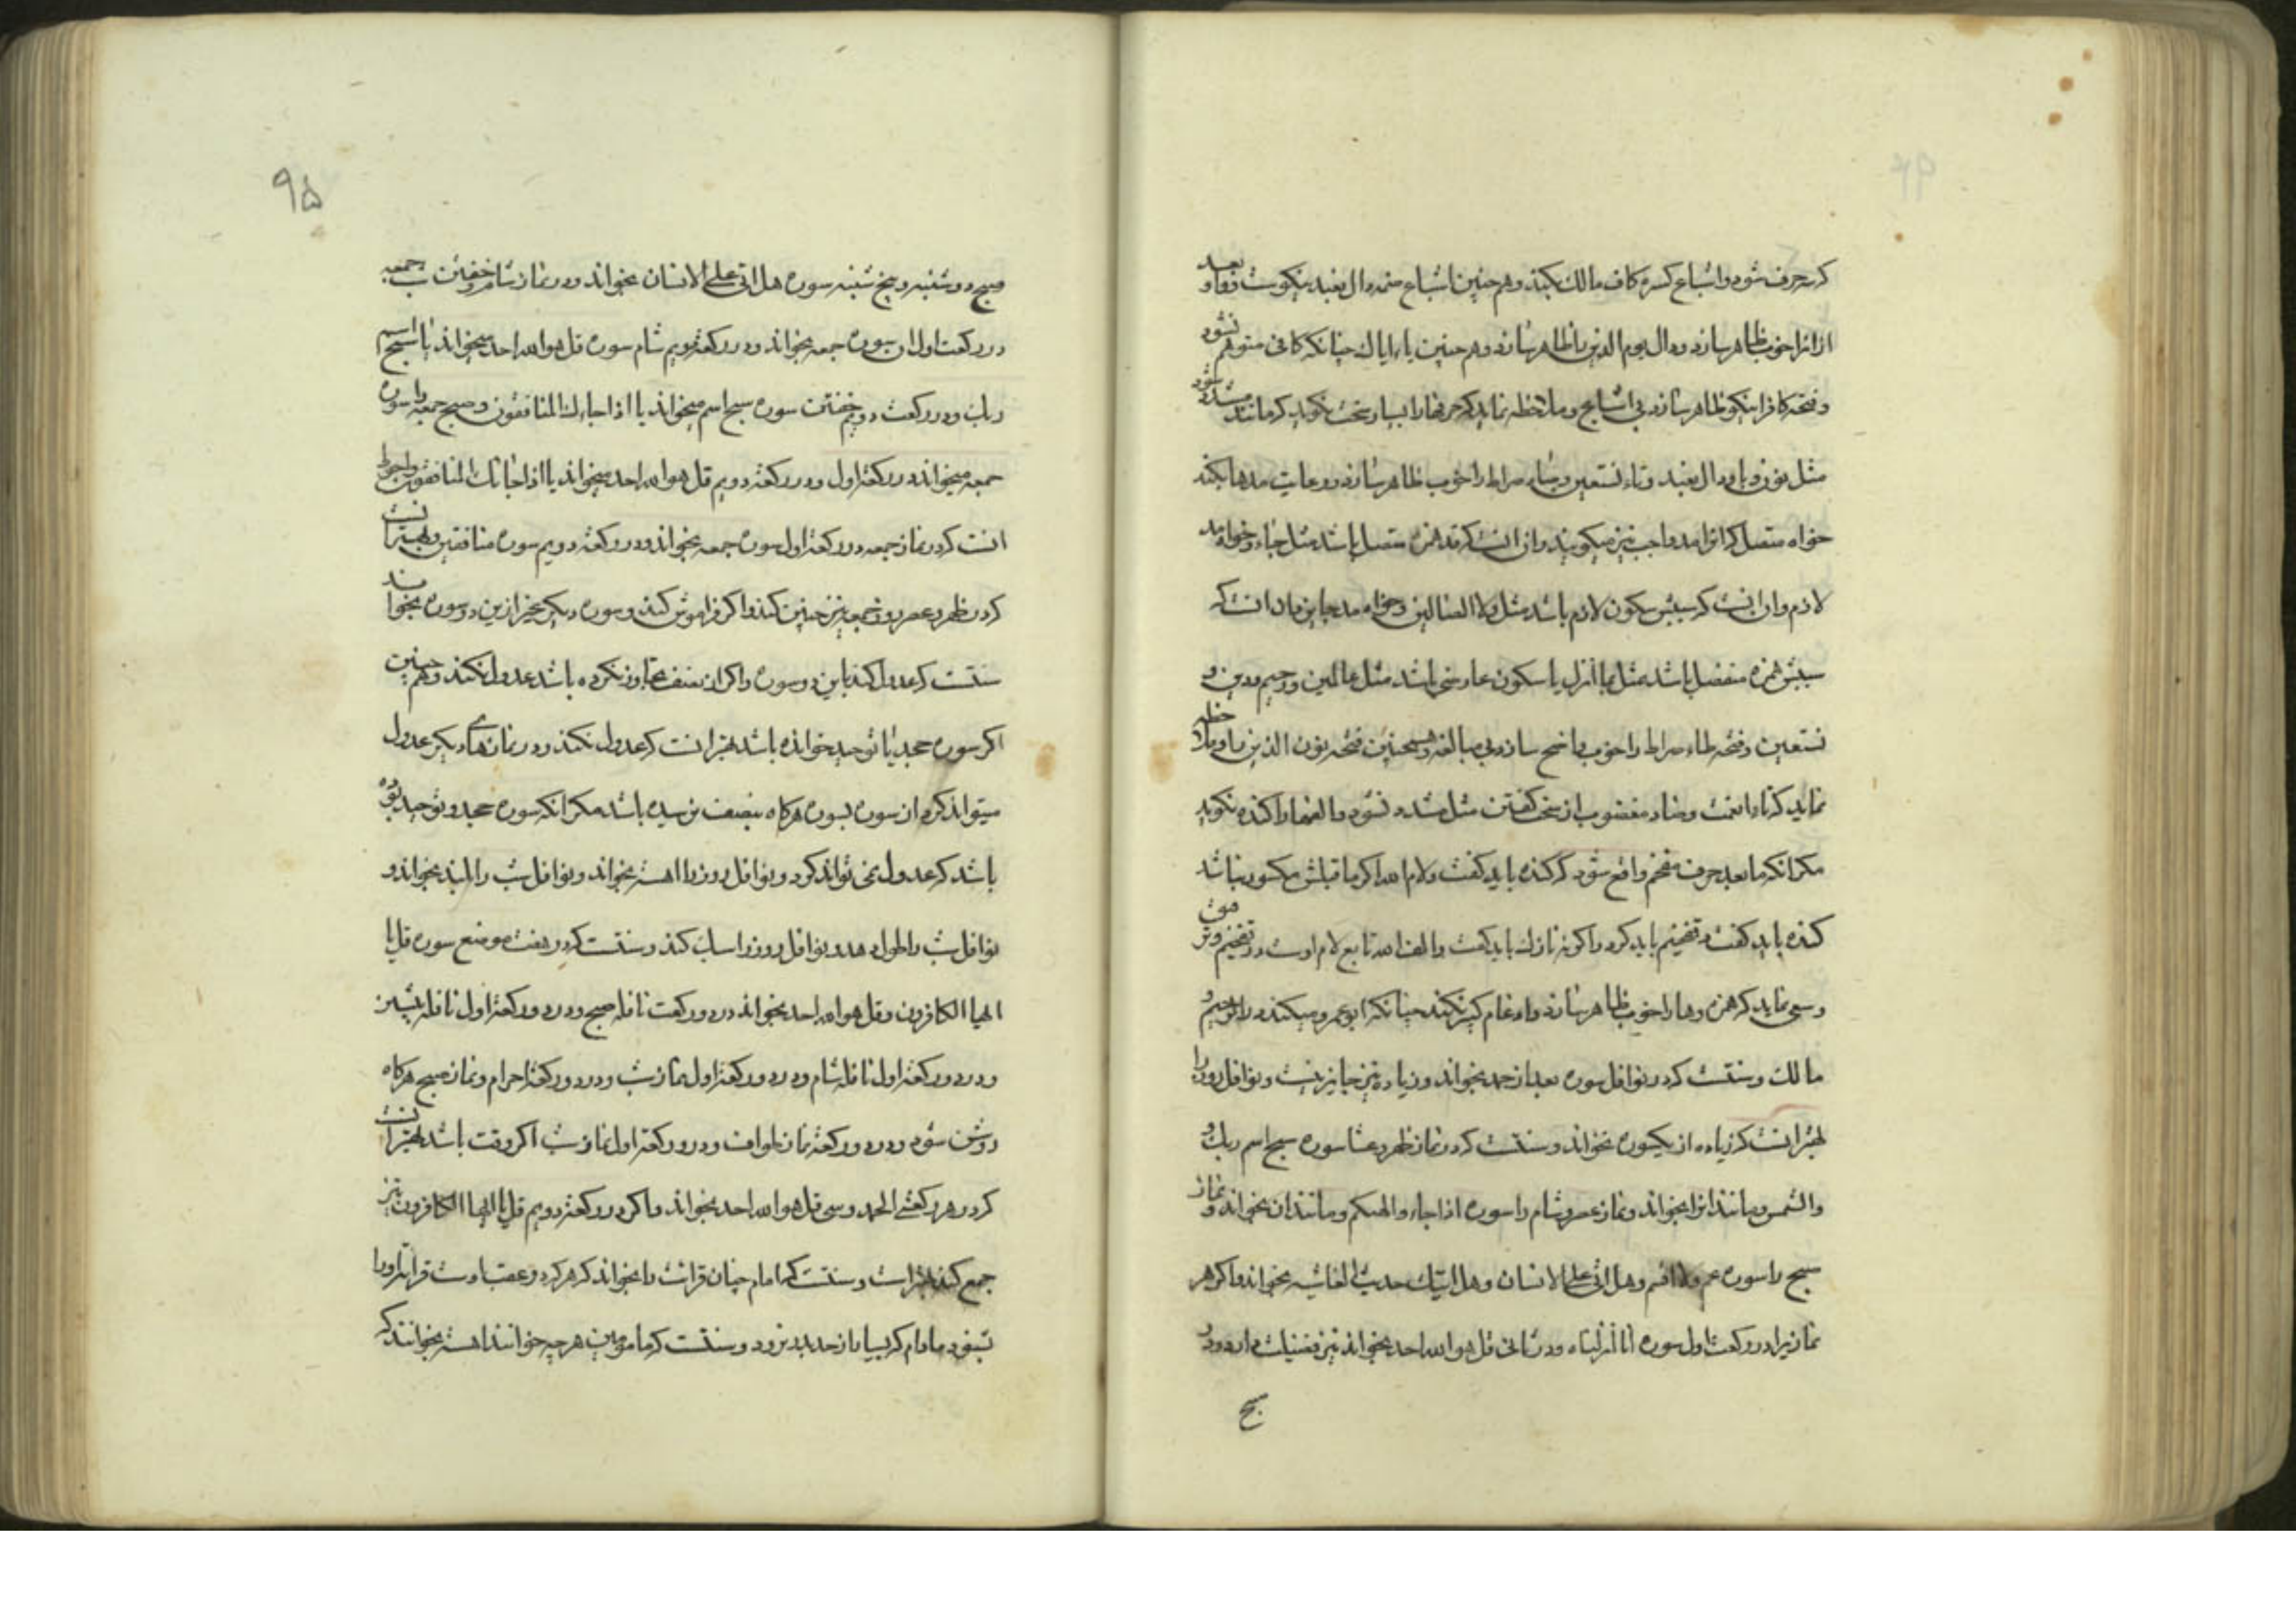 که حرف شود و اشباع کسره کاف مالک نکند و هم چنین اشباع ضمه دال نعبد نیکوست و فاء بعد
از انرا خوب ظاهر سازد و دال یوم الدین را ظاهر سازد و هم چنین یاء ایاک چنانکه کافی متوهم نشود
و فتحه کافرا نیکو ظاهر سازد بی اشباع و ملاحظه نماید که حرفها را بسیار سخت نکوید که مانند مشدد شود
مثل نون و با و دال نعبد و تاء نستعین و صاد صراط را خوب ظاهر سازد و رعایت مدها بکند
خواه متصل که انرا مد واجب نیز میکویند و ان انست که مد همزه متصل باشد مثل جاء و خواه مد
لازم و ان انست که سببش سکون لازم باشد مثل ولا الضالین و خواه مد جایز و ان انست که
سببش همزه منفصل باشد مثل بما انزل یا سکون عارضی باشد مثل عالمین و رحیم و دین و
نستعین و فتحه طاء صراط را خوب واضح سازد بی مبالغه و همچنین فتحه نون الذین را و ملاحظه
نماید که تاء انعمت و ضاد مغضوب از سخت کفتن مثل مشدد نشود و الفها را کنده نکوید
مکر انکه ما بعد حرف مفخم واقع شود که کنده باید کفت و لام الله اکر ما قبلش مکسور نباشد
کنده باید کفت و تفخیم باید کرد و اکر نه نازک باید کفت و الف الله تابع لام اوست در تفخیم و ترقیق
و سعی نماید که همزه و هاء را خوب ظاهر سازد و ادغام کبیر نکند چنانکه ابو عمرو میکند در الرحیم و
مالک و سنتست که در نوافل سوره بعد از حمد بخواند و زیاده نیز جایز است و نوافل روز را
بهتر انست که زیاده از یکسوره نخواند و سنتست که در نماز ظهر و عشا سوره سبح اسم ربک و
والشمس و مانند انرا بخواند و نماز عصر و شام را سوره اذا جاء و الهیکم و مانند ان بخواند و نماز
صبح را سوره عم و لا اقسم و هل اتی علی الانسان و هل اتیک حدیث الغاشیه بخواند و اکر هر
نمازیرا در رکعت اول سوره انا انزلناه و در ثانی قل هو الله احد بخواند نیز فضیلت دارد و در
صبح
۹۵
صبح دوشنبه و پنج شنبه سوره هل اتی علی الانسان بخواند و در نماز شام و خفتن شب جمعه
در رکعت اول ان سوره جمعه بخواند و در رکعت دویم شام سوره قل هو الله احد میخواند یا سبح اسم
ربک و در رکعت دویم خفتن سوره سبح اسم میخواند یا اذا جاءک المنافقون و صبح جمعه را سوره
جمعه میخواند در رکعت اول و در رکعت دویم قل هو الله احد میخواند یا اذا جاءک المنافقون و احوط
انست که در نماز جمعه در رکعت اول سوره جمعه بخواند و در رکعت دویم سوره منافقین و بهتر انست
که در ظهر و عصر روز جمعه نیز چنین کند و اکر فراموش کند و سوره دیکر بغیر ازین دو سوره بخواند
سنتست که عدول کند باین دو سوره و اکر از نصف تجاوز نکرده باشد عدول نکند و هم چنین
اکر سوره جحد یا توحید خوانده باشد بهتر انست که عدول نکند و در نمازهای دیکر عدول
میتواند کرد از سوره بسوره هرکاه بنصف نرسیده باشد مکر انکه سوره جحد و توحید بوده
باشد که عدول نمی تواند کرد و نوافل روز را اهسته بخواند و نوافل شب را بلند بخواند و
نوافل شب را طول دهد و نوافل روز را سبک کند و سنتست که در هفت موضع سوره قل یا
ایها الکافرون و قل هو الله احد بخواند در دو رکعت نافله صبح و در دو رکعت اول نافله پیشین
و در دو رکعت اول نافله شام و در دو رکعت اول نماز شب و در دو رکعت احرام و نماز صبح هرکاه
روشن شود و در دو رکعت نماز طواف و در دو رکعت اول نماز شب اکر وقت باشد بهتر انست
که در هر رکعتی الحمد و سی قل هو الله احد بخواند و اکر در رکعت دویم قل یا ایها الکافرون نیز
جمع کند بهتر است و سنتست که امام چنان قرائت را بخواند که هر که در عقب اوست قرائت او را
بشنود مادام که بسیار از حد بدر نرود و سنتست که مامومین هر چه خوانند اهسته بخوانند که